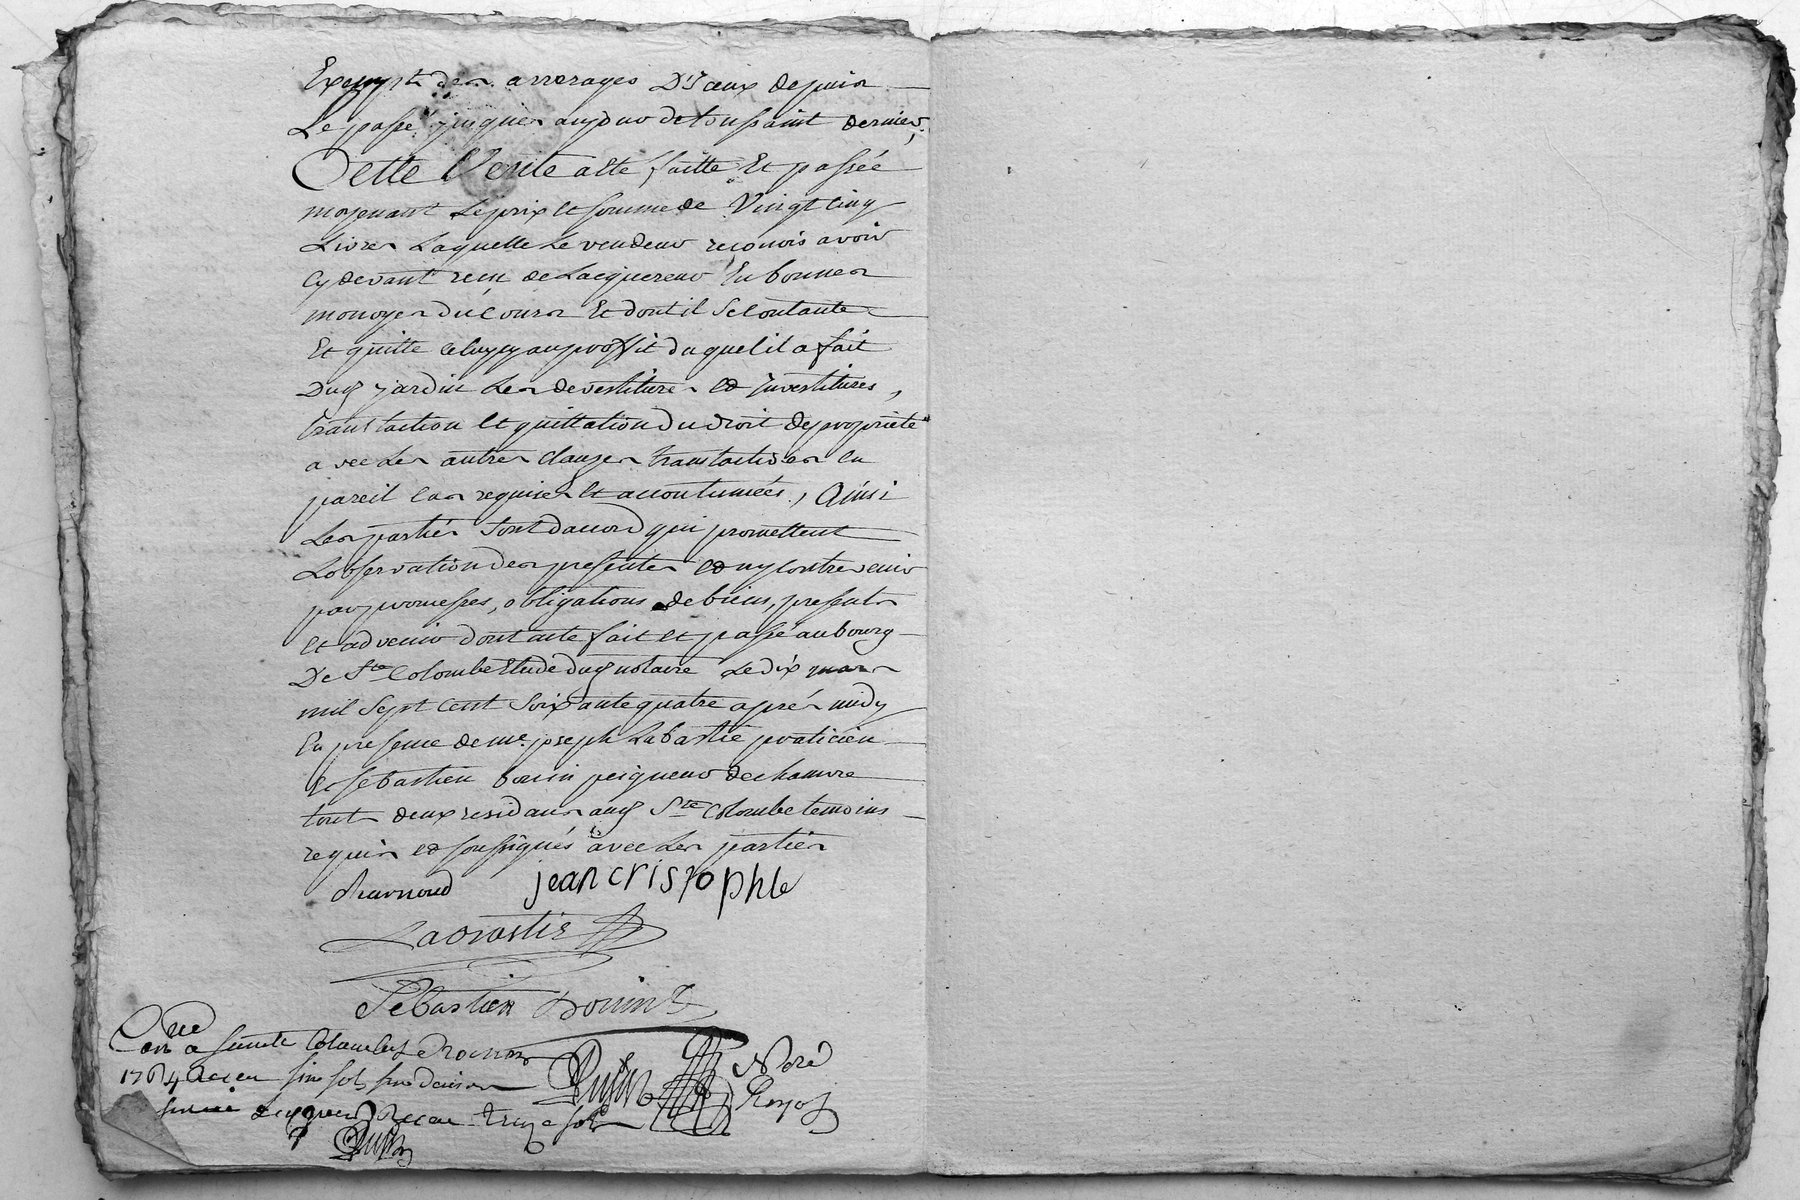 Exempt des arrerages D'Iceux depuis
Le passé jusques aujour de toussaint dernier,
Cette Vente a Ete faitte Et passée
moyenant Le prix et somme de Vingt cinq
Livres Laquelle Le vendeur reconois avoir
Cy devant reçu de Lacquereur En bonnes
monoyes du Cours Et dont il Se Contante
Et quitte celuycy au proffit duquel il a fait
Dud jardin Les devestitures et Investitures,
translaction et quittation du droit de proprieté
avec Les autres clauses translatives en
pareil Cas requises Et accoutumées, Ainsi
Les parties Sont daccord qui promettent
Lobservation des presentes et ny contrevenir
par promesses, obligations de biens, presents
et advenir dont acte fait et passé au bourg
De Ste Colombe Etude dud notaire Le dix mars
mil Sept Cent Soixante quatre aprés midy
En presence de me. joseph Labastie praticien
Et Sebastien bonin peigneur de chamvre
touts deux residans aud Ste Colombe temoins
requis et soussignés avec Les parties
Charnoud jean cristophle
Labrastie
Sebastien Bonin
Conlle a sainte Colombe Le
1764 Receu
Receu treize sols
Noré
Royal